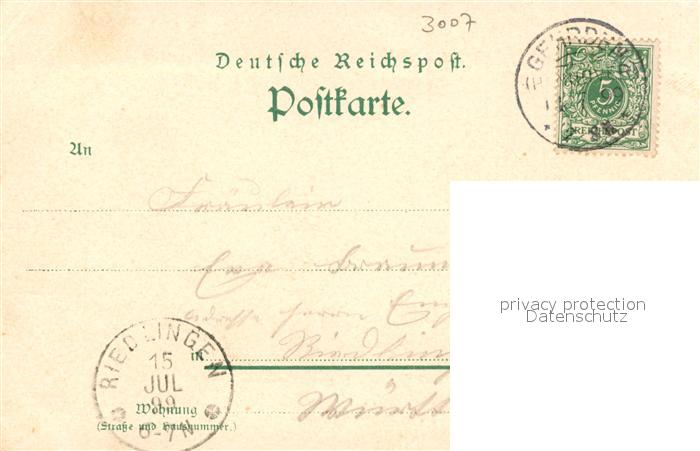 3007
Deutsche Reichspost.
Postkarte.
5
PFENNIG
REICHSPOST
An
Fräulein
Adresse Herrn
in Riedlin
Württ
RIEDLINGEN
15
JUL
99
6-7N
Wohnung
(Straße und Hausnummer.)
privacy protection
Datenschutz